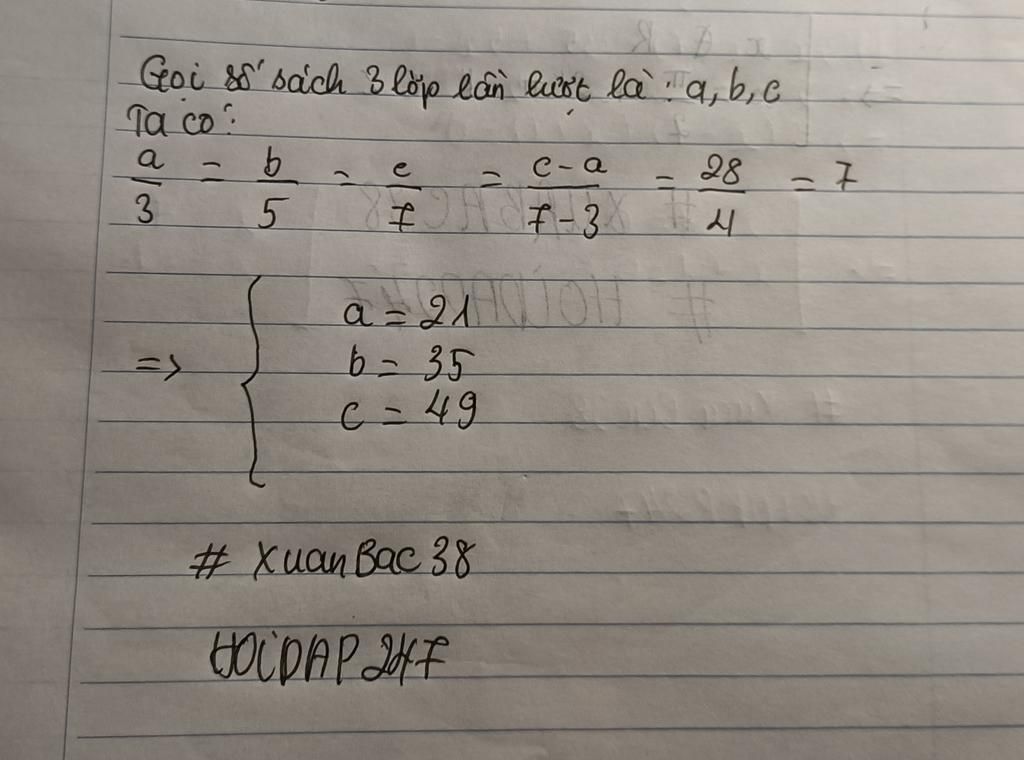 Gọi số sách 3 lớp lần lượt là : a, b, c
Ta có :
a/3 = b/5 = c/7 = c-a/7-3 = 28/4 = 7
=> { a = 21
b = 35
c = 49
# XuanBac38
HOiDAP247